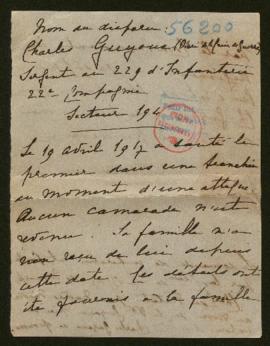 Nom du disparu: 56200
Charle Guyous
Sergent au 229 d'Infanterie
22e Compagnie
Secteur 194
Le 19 avril 1917 a sauté le
premier dans une tranchée
au moment d'une attaque
Aucun camarade n'est
revenu Sa famille n'a
rien reçu de lui depuis
cette date Ces détails ont
été fournis à la famille